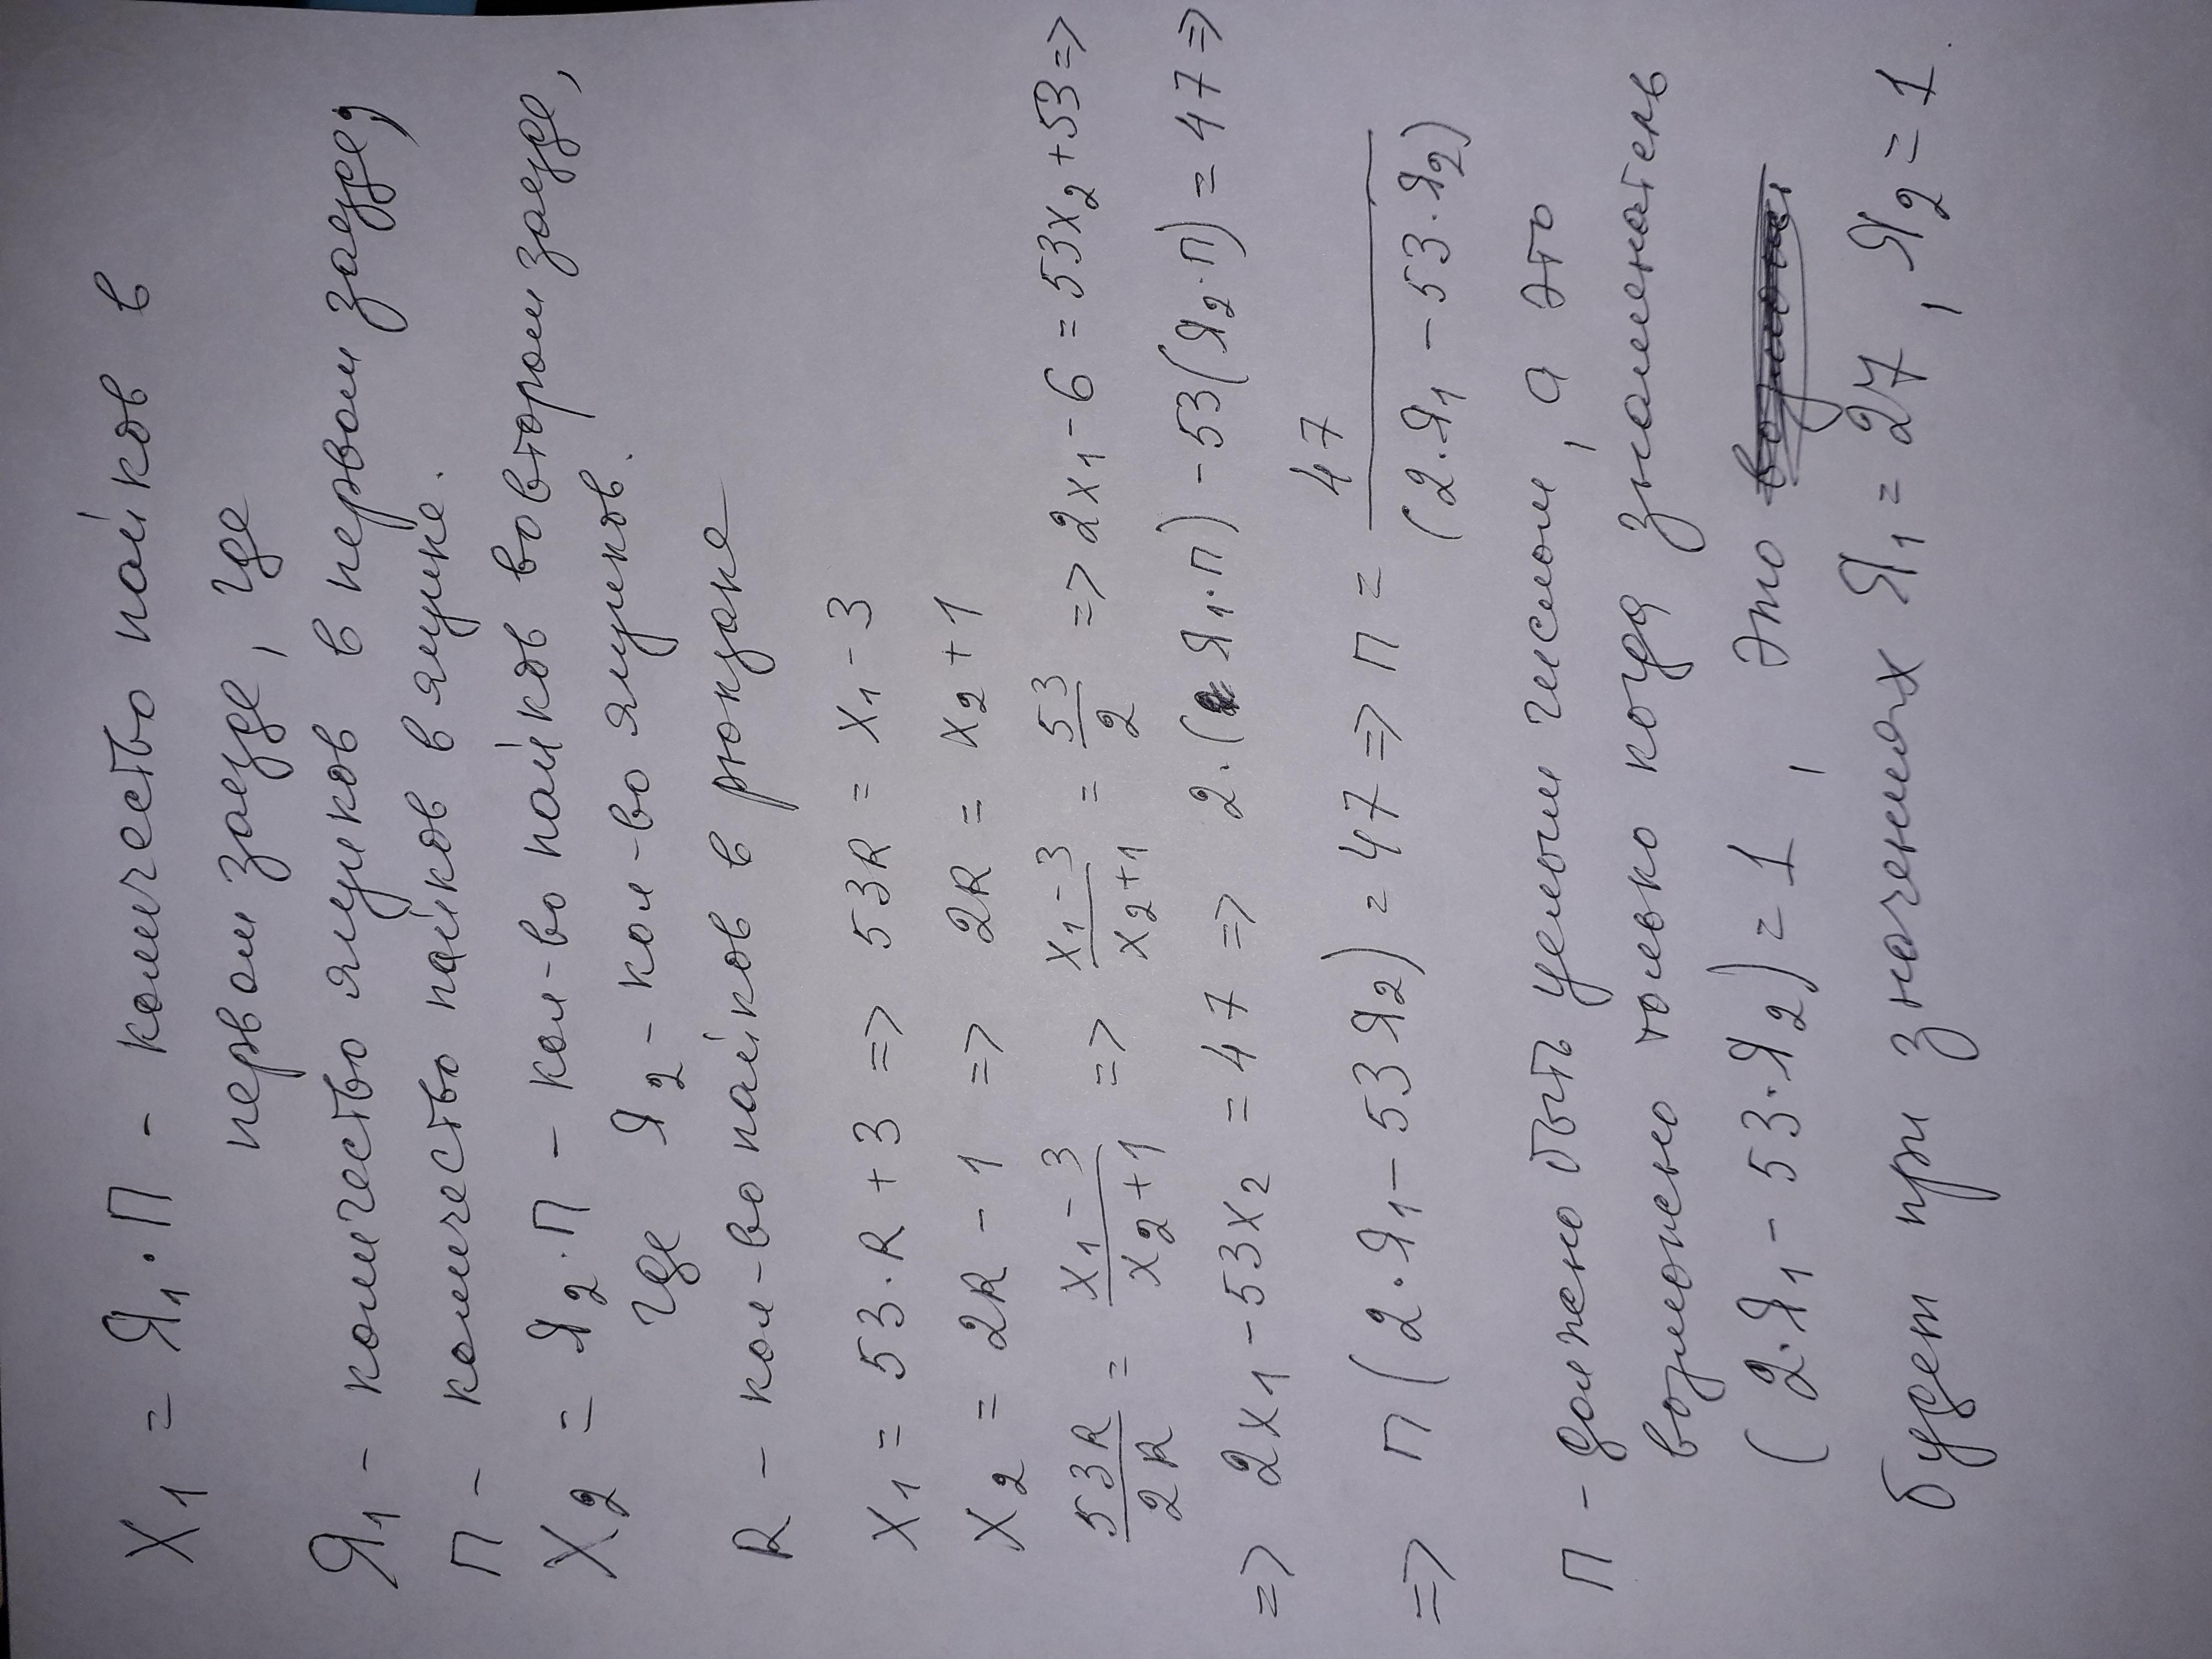 X₁ = Я₁·П - количество пайков в
первом заезде, где
Я₁ - количество ящиков в первом заезде;
П - количество пайков в ящике.
X₂ = Я₂·П - кол-во пайков во втором заезде,
где Я₂ - кол-во ящиков.
R - кол-во пайков в рюкзаке
X₁ = 53·R + 3 => 53R = X₁ - 3
X₂ = 2R - 1 => 2R = X₂ + 1
53R/2R = (X₁ - 3)/(X₂ + 1) => (X₁ - 3)/(X₂ + 1) = 53/2 => 2X₁ - 6 = 53X₂ + 53 =>
=> 2X₁ - 53X₂ = 47 => 2·(Я₁·П) - 53(Я₂·П) = 47 =>
=> П(2·Я₁ - 53Я₂) = 47 => П = 47/(2·Я₁ - 53·Я₂)
П - должно быть целым числом, а это
возможно только когда знаменатель
(2·Я₁ - 53·Я₂) = 1, это
будет при значениях Я₁ = 27, Я₂ = 1.